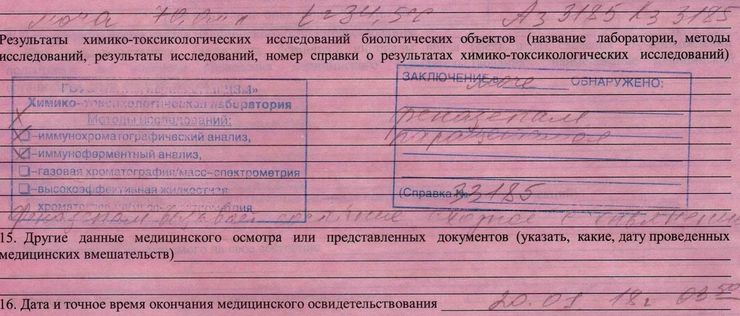 моча t=34,5°C Аз 3185 Кз 3185
Результаты химико-токсикологических исследований биологических объектов (название лаборатории, методы
исследований, результаты исследований, номер справки о результатах химико-токсикологических исследований)
Химико-токсикологическая лаборатория
Методы исследований:
-иммунохроматографический анализ,
-иммуноферментный анализ,
-газовая хроматография/масс-спектрометрия
-высокоэффективная жидкостная
ЗАКЛЮЧЕНИЕ в моче ОБНАРУЖЕНО:
феназепам
парацетамол
(Справка № 33185
15. Другие данные медицинского осмотра или представленных документов (указать, какие, дату проведенных
медицинских вмешательств)
16. Дата и точное время окончания медицинского освидетельствования 20.01.18г